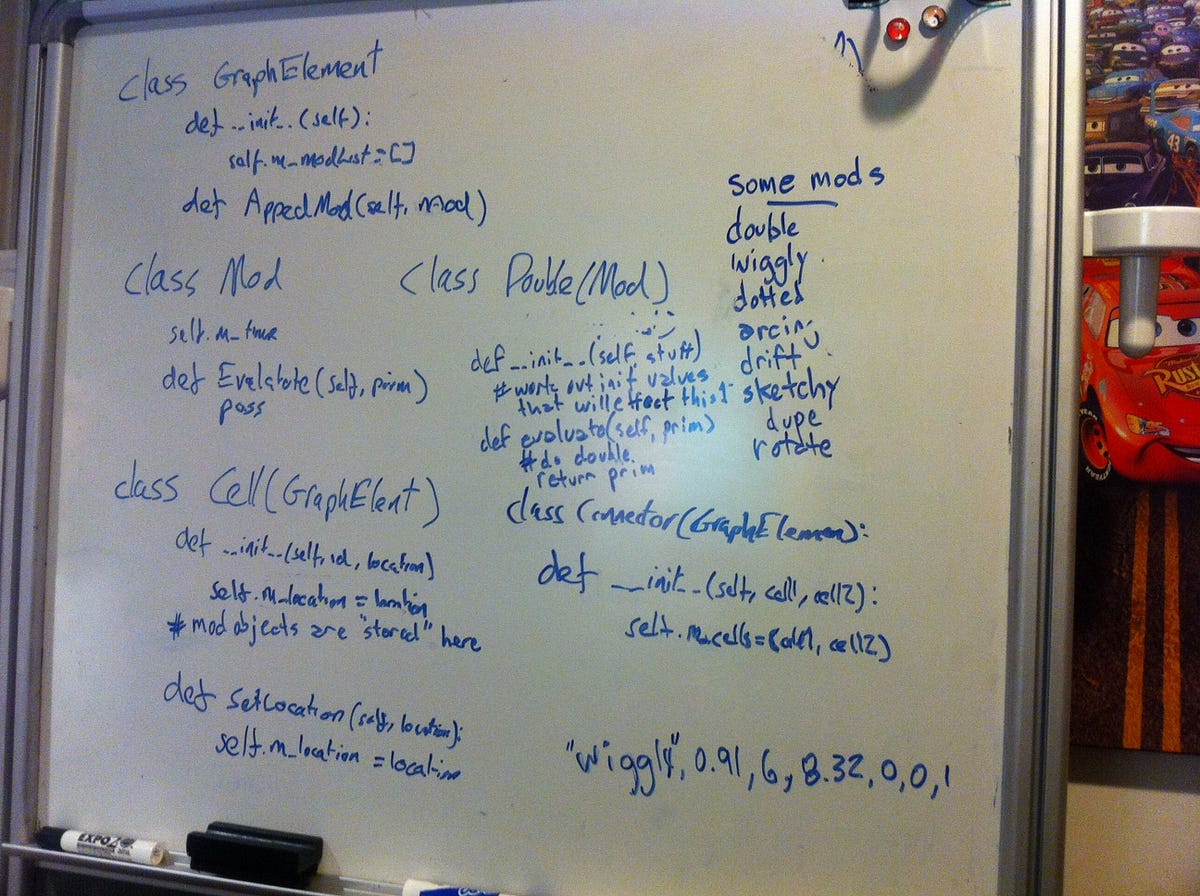 class GraphElement
def __init__(self):
self.m_modList = []
def AppedMod(self, mod)
class Mod
self.m_time
def Evalatate(self, prim)
pass
class Double(Mod)
def __init__(self, stuff)
# work out init values
that will effect this
def evaluate(self, prim)
# do double
return prim
some mods
double
wiggly
dotted
arcing
drift
sketchy
dupe
rotate
class Cell(GraphElent)
def __init__(self, id, location)
self.m_location = location
# mod objects are "stored" here
def SetLocation(self, location):
self.m_location = location
class Connector(GraphElemen):
def __init__(self, cell1, cell2):
self.m_cells = [cell1, cell2]
"wiggly", 0.91, 6, 8.32, 0, 0, 1
EXPO
43
Rust